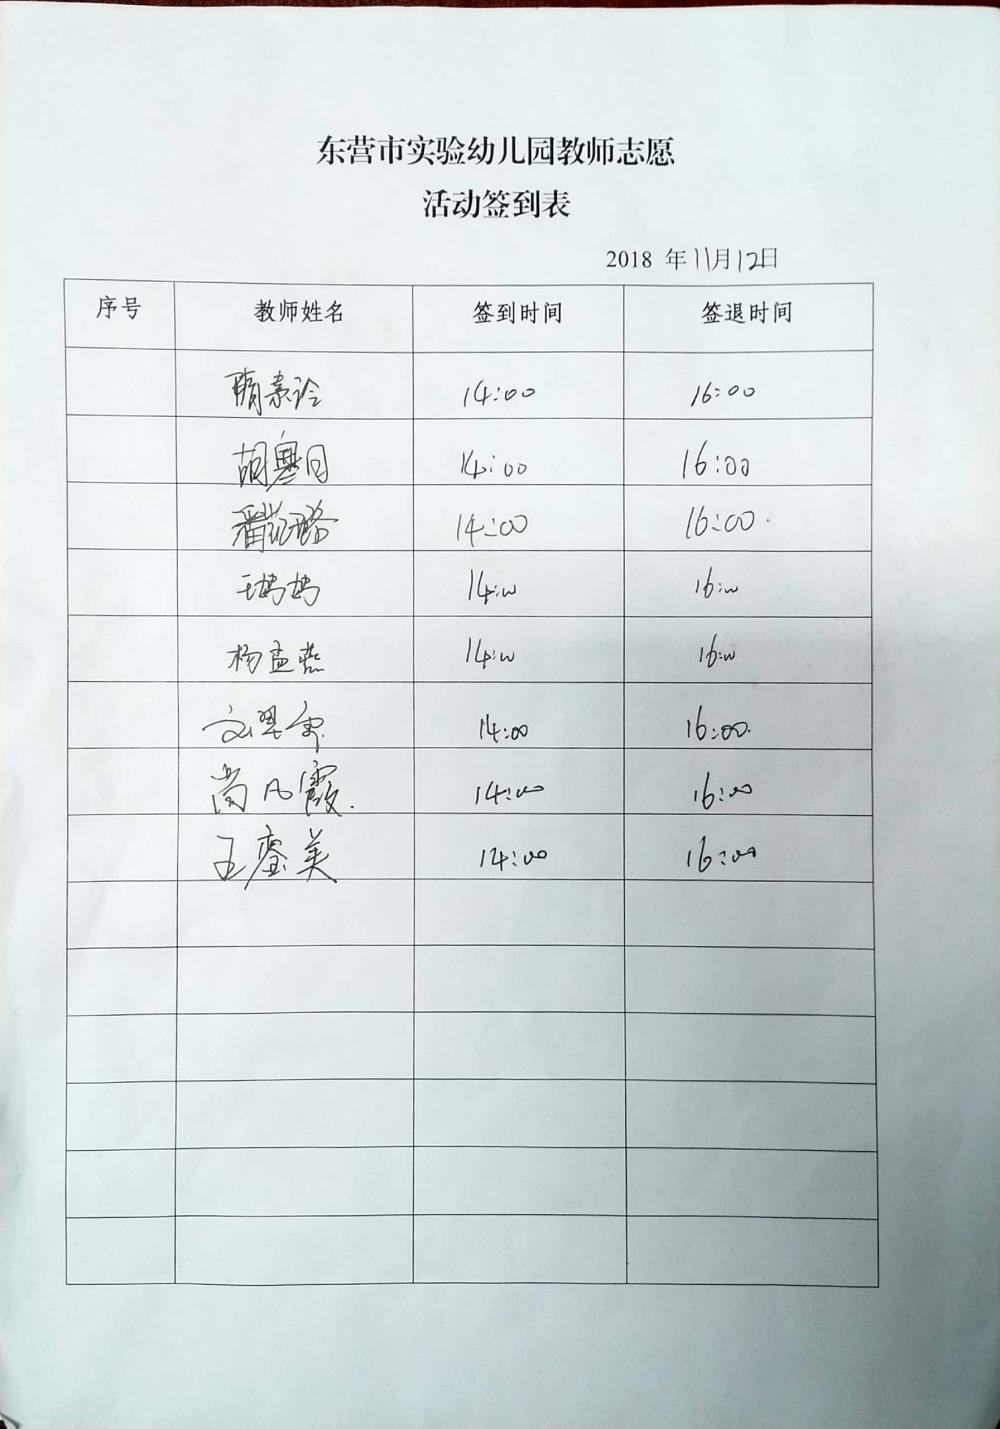 东营市实验幼儿园教师志愿
活动签到表
2018 年11月12日
序号 教师姓名 签到时间 签退时间
隋素玲 14:00 16:00
14:00 16:00
14:00 16:00
王鸽鸽 14:00 16:00
杨孟燕 14:00 16:00
14:00 16:00.
尚凡霞. 14:00 16:00
王銮美 14:00 16:00